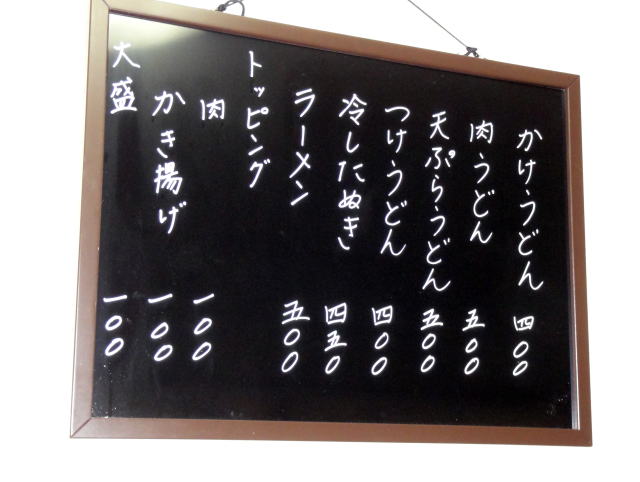 かけうどん 四〇〇
肉うどん 五〇〇
天ぷらうどん 五〇〇
つけうどん 四〇〇
冷したぬき 四五〇
ラーメン 五〇〇
トッピング
肉 一〇〇
かき揚げ 一〇〇
大盛 一〇〇